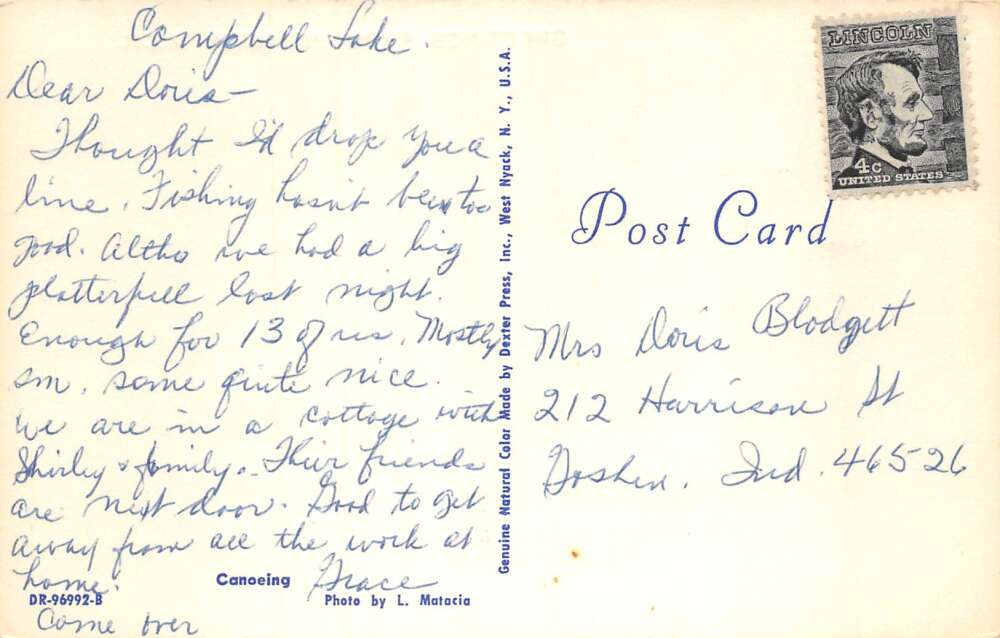 Campbell Lake.
Dear Doris—
Thought I'd drop you a
line. Fishing hasn't been too
good. Altho we had a big
platterfull last night.
Enough for 13 of us. Mostly
sm, some quite nice.
We are in a cottage with
Shirley & family. Their friends
are next door. Good to get
away from all the work at
home.
Grace
Come over
Canoeing
DR-96992-B
Photo by L. Matacia
Genuine Natural Color Made by Dexter Press, Inc., West Nyack, N. Y., U.S.A.
LINCOLN
4c
UNITED STATES
Post Card
Mrs Doris Blodgett
212 Harrison St
Goshen, Ind. 46526